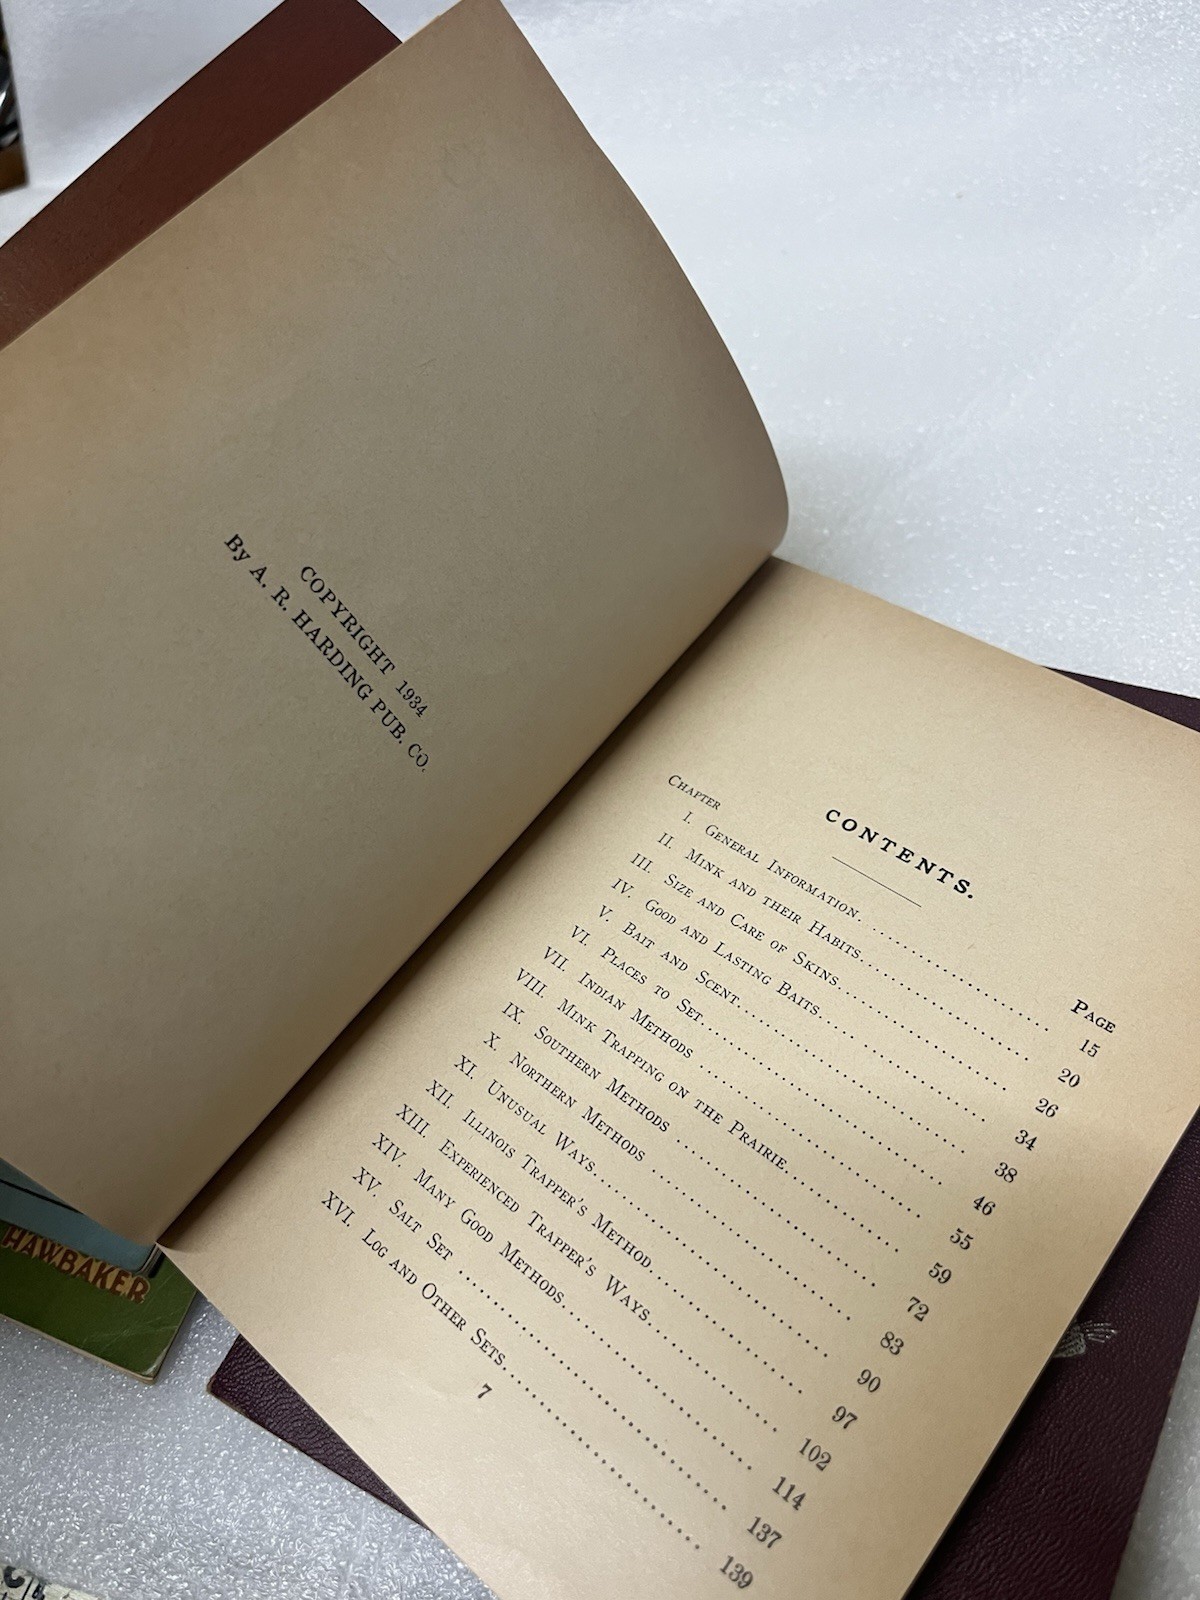 COPYRIGHT 1934
By A. R. HARDING PUB. CO.
CONTENTS.
CHAPTER PAGE
I. GENERAL INFORMATION. 15
II. MINK AND THEIR HABITS. 20
III. SIZE AND CARE OF SKINS. 26
IV. GOOD AND LASTING BAITS. 34
V. BAIT AND SCENT. 38
VI. PLACES TO SET. 46
VII. INDIAN METHODS 55
VIII. MINK TRAPPING ON THE PRAIRIE. 59
IX. SOUTHERN METHODS 72
X. NORTHERN METHODS 83
XI. UNUSUAL WAYS. 90
XII. ILLINOIS TRAPPER'S METHOD. 97
XIII. EXPERIENCED TRAPPER'S WAYS. 102
XIV. MANY GOOD METHODS. 114
XV. SALT SET 137
XVI. LOG AND OTHER SETS. 139
7
HAWBAKER